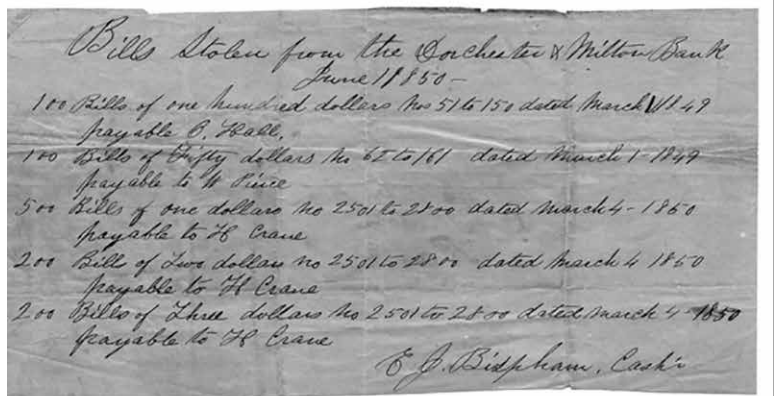 Bills Stolen from the Dorchester & Milton Bank
June 1 1850 -
100 Bills of one hundred dollars Nos 51 to 150 dated March 1 1849
payable O. Hall,
100 Bills of Fifty dollars No 62 to 161 dated March 1 - 1849
payable to W Pierce
500 Bills of one dollars no 2501 to 2800 dated March 4 - 1850
payable to H Crane
200 Bills of Two dollars no 2501 to 2800 dated March 4 1850
payable to H Crane
200 Bills of Three dollars No 2501 to 2800 dated March 4 - 1850
payable to H Crane
E J. Bispham, Cash'r